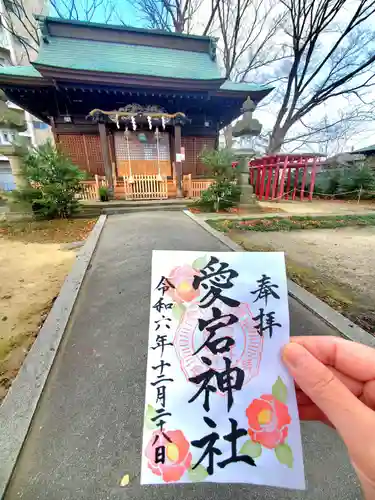 奉拝
愛宕神社
令和六年十二月二十八日